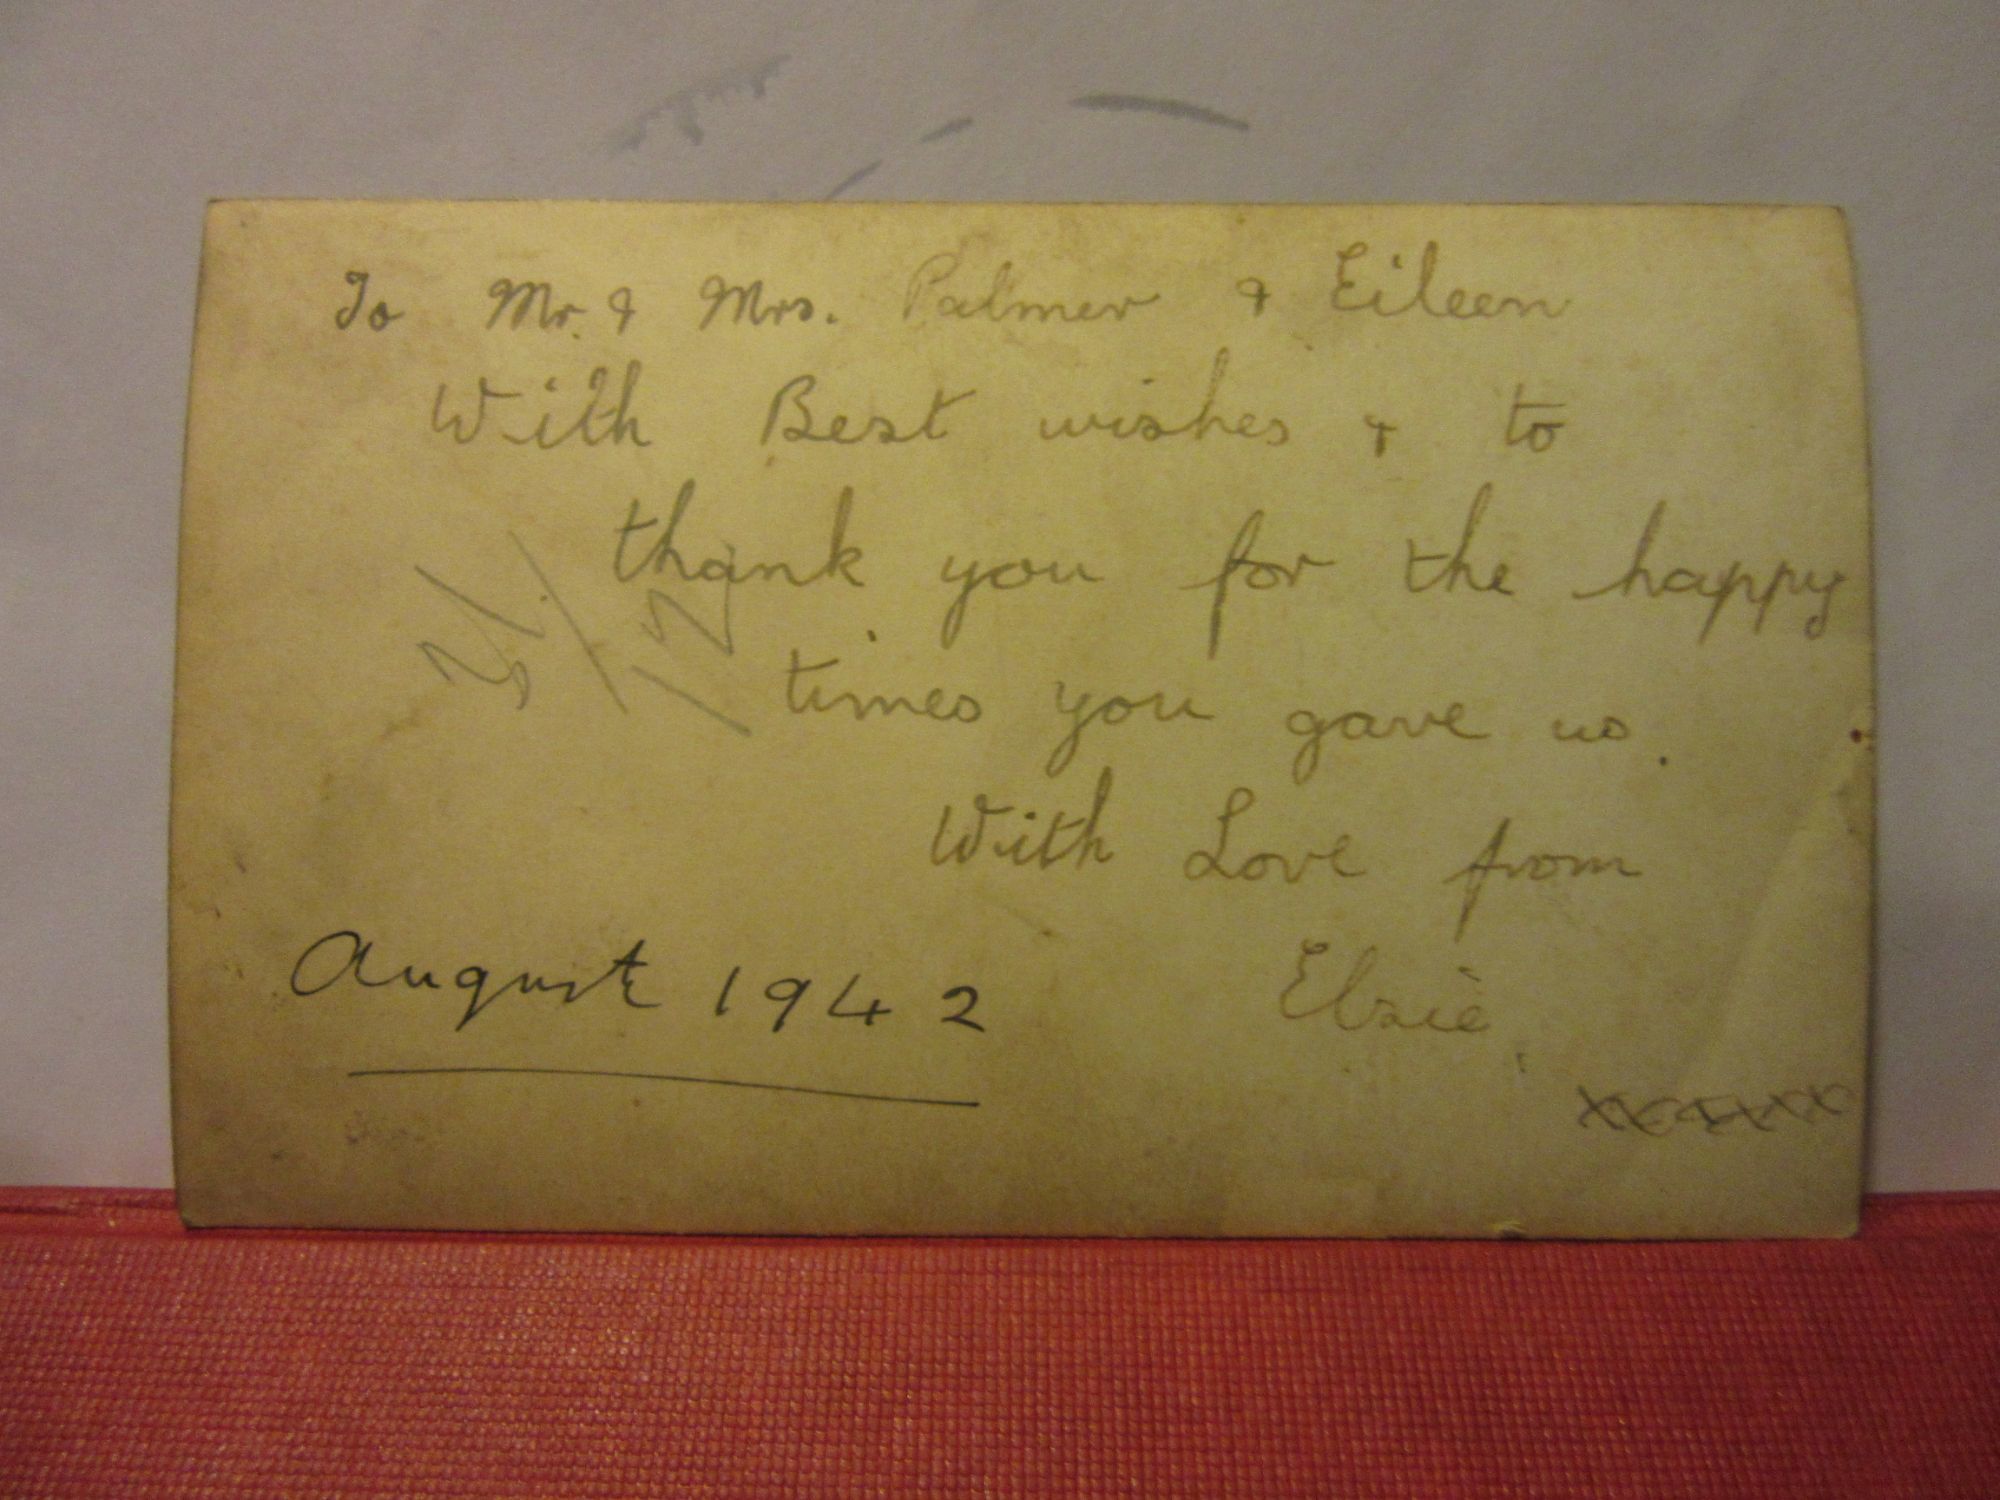 To Mr. & Mrs. Palmer & Eileen
With Best wishes & to
thank you for the happy
times you gave us.
With Love from
Elsie.
xxxxxxx
August 1942